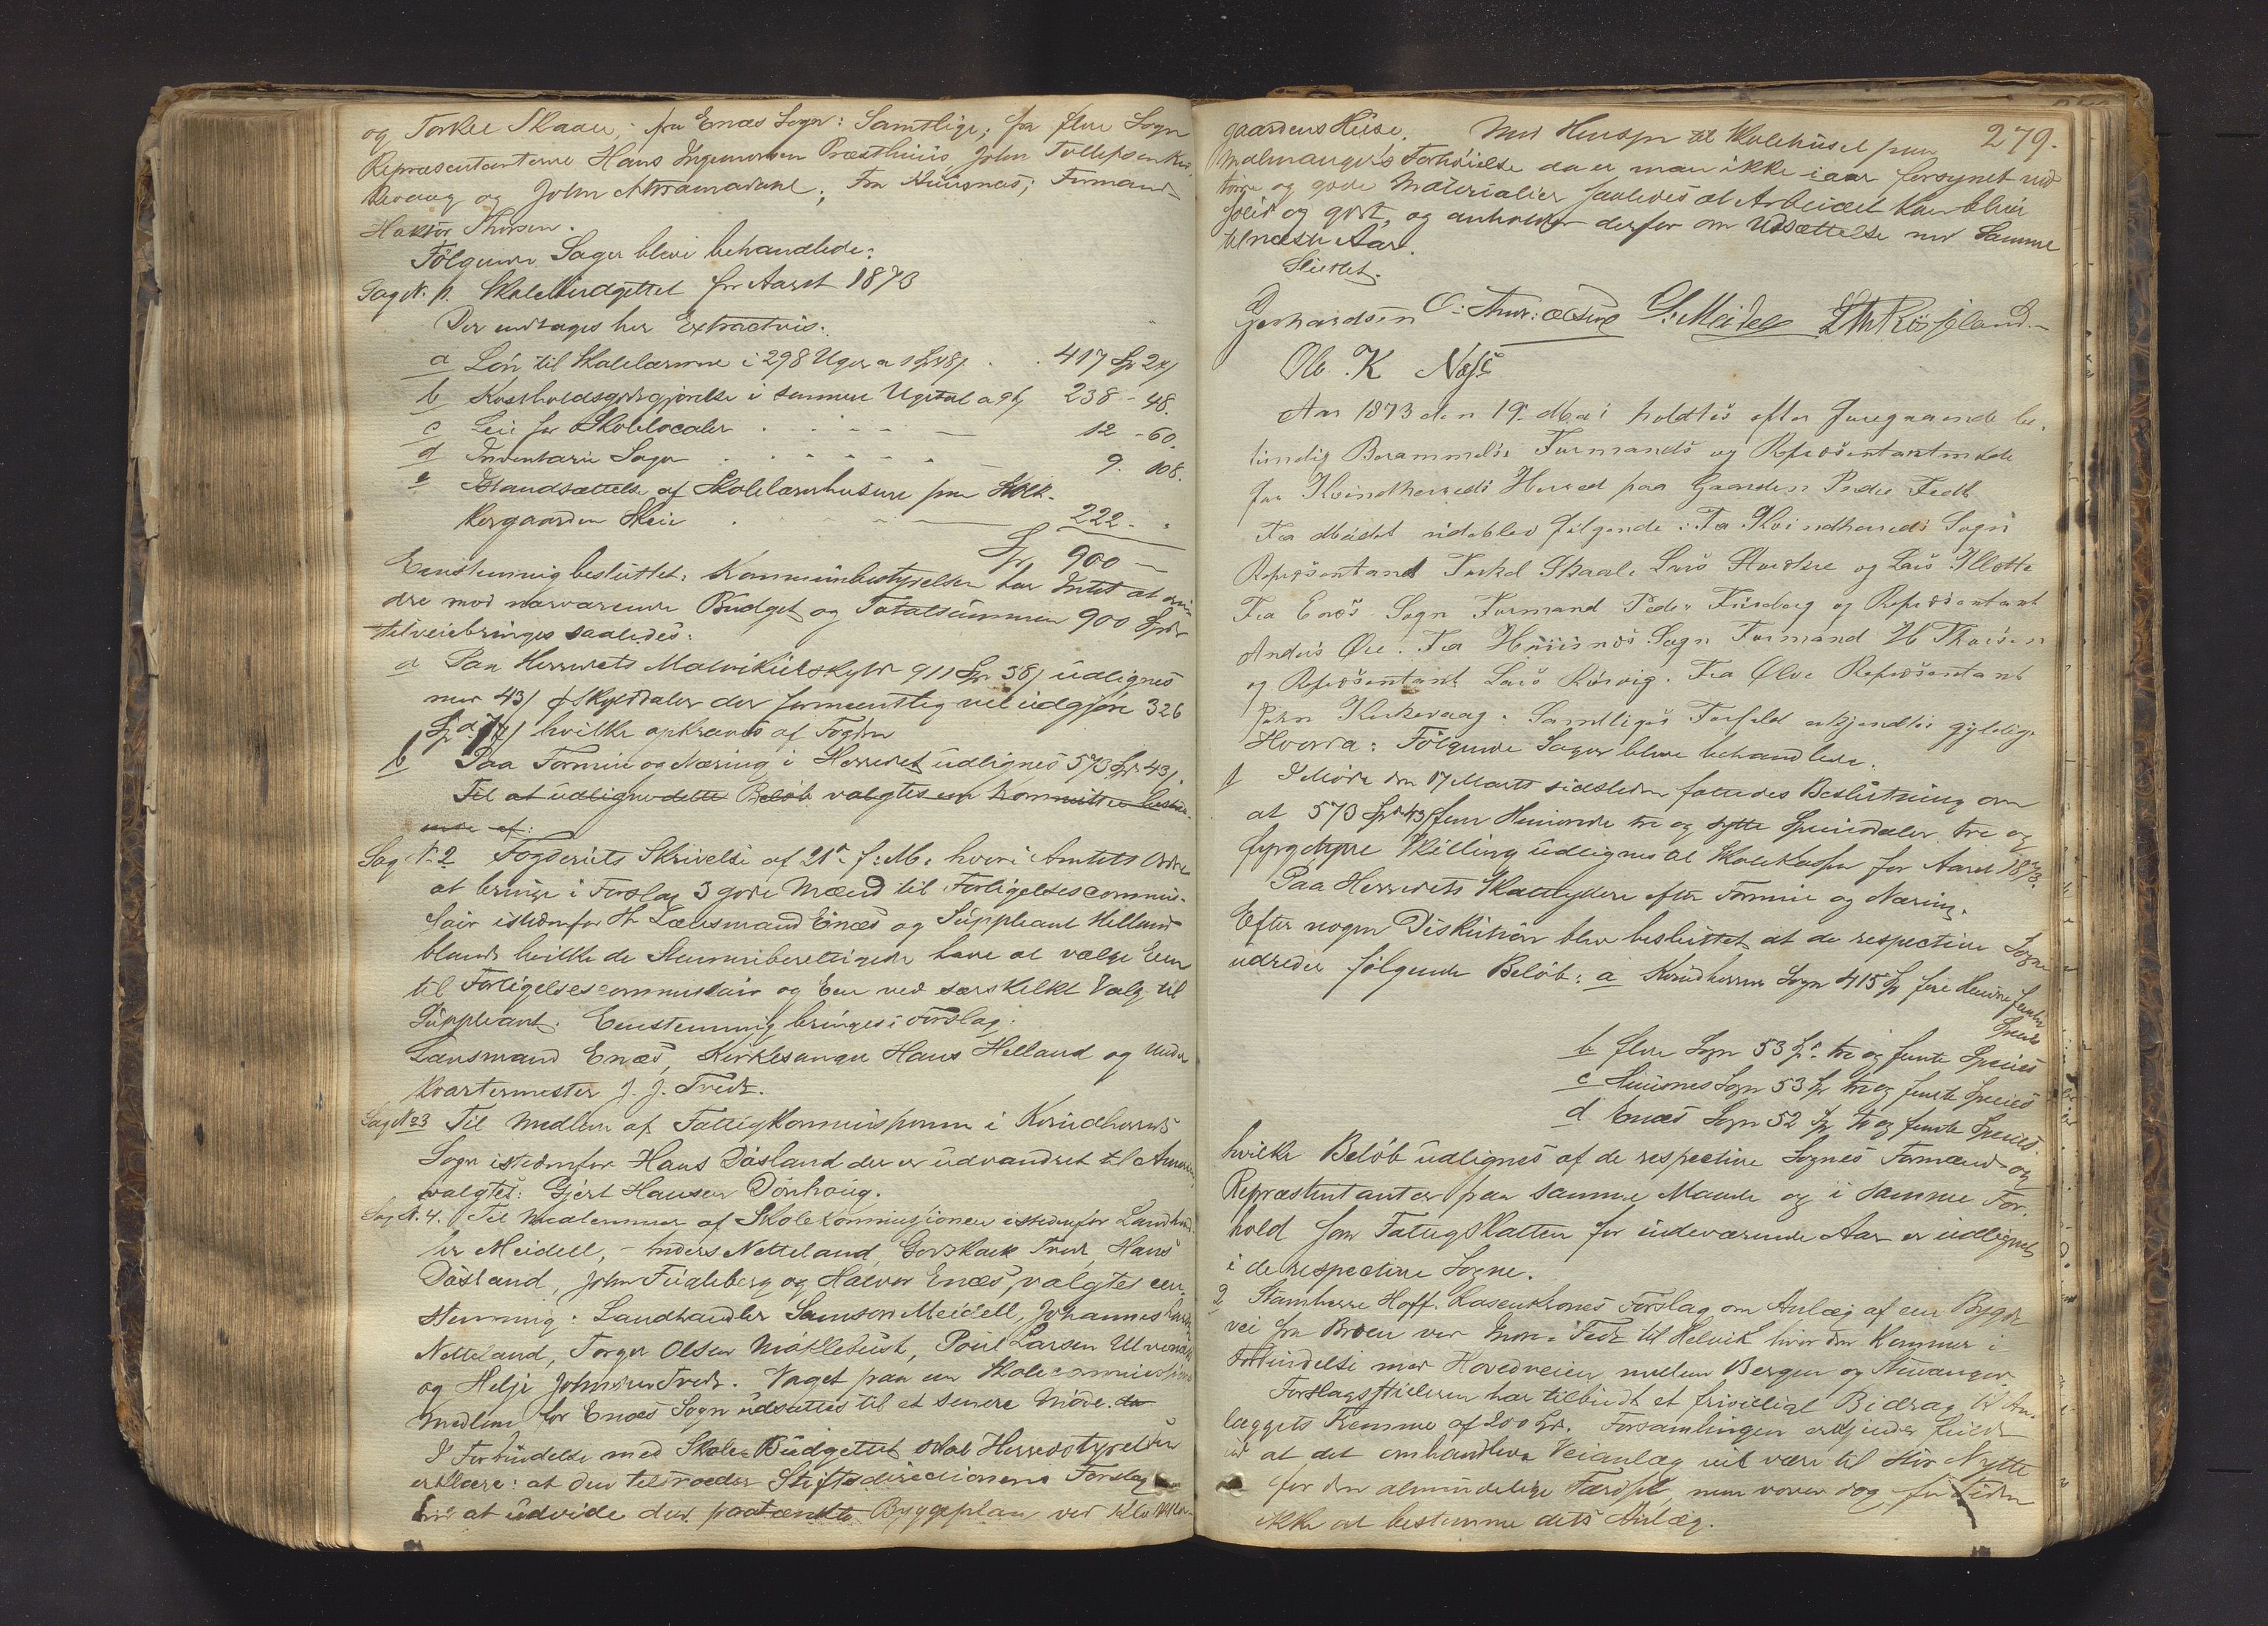 og Torkel Skaale; fra Enæs Sogn: Samtlige; fra Ølve Sogn
Repræsentanterne Hans Ingemorsen Præsthuus, John Tollefsen Kir-
kevaag og John Attramadahl; Fra Huusnæs; Formand
Haktor Thorsen.
Følgende Sager bleve behandlede:
Sag N. 1. Skolebudgettet for Aaret 1873
Der indtages her Extractvis:
a Løn til Skolelærerne i 298 Uger a 1 Spd 48 s. 417 Sp 24 s
b Kostholdsgodtgjørelse i samme Ugetal a 96 s 238 - 48.
c Leie for Skolelocaler 12 - 60.
d Inventarie Sager 9. 108.
e Istandsættelse af Skolelærerhusene paa Klok-
kergaarden Skeie 222 - "
Sp 900 -
Eenstemmig besluttet: Kommunbestyrelsen har Intet at erin
dre mod nærværende Budget og Totalsummen 900 Spd
tilveiebringes saaledes:
a Paa Herredets Matrikulskyld 911 Spd 38 s udlignes
med 43 s pr Skylddaler der formeentlig vil udgjøre 326
Spd hvilke opkræves af Fogden
b Paa Formue og Næring i Herredet udlignes 573 Spd 43 s.
Til at udligne dette Beløb valgtes en Kommittee bestaa-
ende af:
Sag N. 2 Fogderiets Skrivelse af 21de f: M: hvori Amtets Ordre
at bringe i Forslag 3 gode Mænd til Forligelsescommis-
sair istedenfor Hr Lænsmand Enæs og Suppleant Helland
blandt hvilke de Stemmeberettigede have at vælge Een
til Forligelsescommissair og Een ved særskilt Valg til
Suppleant. Eenstemmig bringes i Forslag:
Lænsmand Enæs, Kirkesanger Hans Helland og Under
kvartermester J. J. Tvedt.
Sag N 3 Til Medlem af Fattigkommissionen i Kvindherreds
Sogn istedenfor Hans Døsland der er udvandret til Amerika,
valgtes: Gjert Hansen Dønhaug.
Sag N. 4. Til Medlemmer af Skolekommissionen istedenfor Landhand
ler Meidell, Anders Netteland, Godskalk Tvedt, Hans
Døsland, John Fugleberg og Halvor Enæs, valgtes een-
stemmig: Landhandler Samson Meidell, Johannes Larsen
Netteland, Torger Olsen Møklebust, Poul Larsen Ulvenæs
og Helje Johnsen Tvedt. Valget paa en Skolecommissions
Medlem for Enæs Sogn udsættes til et senere Møde. da
I Forbindelse med Skole-Budgettet skal Herredsstyrelsen
erklære: at den tiltræder Stiftsdirectionens Forslag
at udvide den paatænkte Byggeplan ved Klokker-
279.
gaardens Huse. Med Hensyn til Skolehuset paa
Malmangers Forhøielse da er man ikke iaar forsynet med
tørre og gode Materialier saaledes at Arbeidet kan blive
solid og godt, og anholder derfor om Udsættelse med Samme
til næste Aar.
Sluttet.
Gerhardsen S: Meidell
Ole K Næss
Aar 1873 den 19de Mai holdtes efter foregaaende be-
timelig Berammelse Formands og Repræsentantmøde
for Kvindherreds Herred paa Gaarden Nedre Tvedt
Fra Mødet udeblev følgende: Fra Kvindherreds Sogn
Repræsentant Torkel Skaale Lars Handere og Lars Flotte
Fra Enæs Sogn Formand Peder Fuseberg og Repræsentant
Anders Øie. Fra Huusnæs Sogn Formand H Thorsen
og Repræsentant Lars Røsvig. Fra Ølve Repræsentant
John Kirkevaag. Samtliges Forfald erkjendtes gyldige
Hvorda: Følgende Sager bleve behandlede.
1 I Møde den 17 Marts sidstleden fattedes Beslutning om
at 573 Spd 43 s fem Hundrede tre og sytti Speciedaler tre og
fyrgetyve Skilling udlignes til Skolekassen for Aaret 1873.
Paa Herredets Skatteydere efter Formue og Næring.
Efter nogen Diskution blev besluttet at de respective Sogne
udreder følgende Beløb: a Kvindherreds Sogn 415 Sp fire Hundre femten
Species
b Ølve Sogn 53 Sp tre og femti Species
c Huusnes Sogn 53 Sp tre og femti Species
d Enæs Sogn 52 Sp to og femti Species.
hvilke Beløb udlignes af de respective Sognes Formænd og
Repræsentanter paa samme Maade og i samme For-
hold som Fattigskatten for indeværende Aar er udlignet
i de respective Sogne.
2 Stamherre Hoff-Rosenkrones Forslag om Anlæg af en Bygde
vei fra Broen ved Indre Tvedt til Helvik hvor den kommer i
Forbindelse med Hovedveien mellem Bergen og Stavanger.
Forslagsstilleren har tilbudt et frivilligt Bidrag til An-
læggets Fremme af 200 Spd. Forsamlingen erkjender fuldt
ud at det omhandlede Veianlæg vil være til stor Nytte
for den almindelige Færdsel, men vover dog for Tiden
ikke at bestemme dets Anlæg.